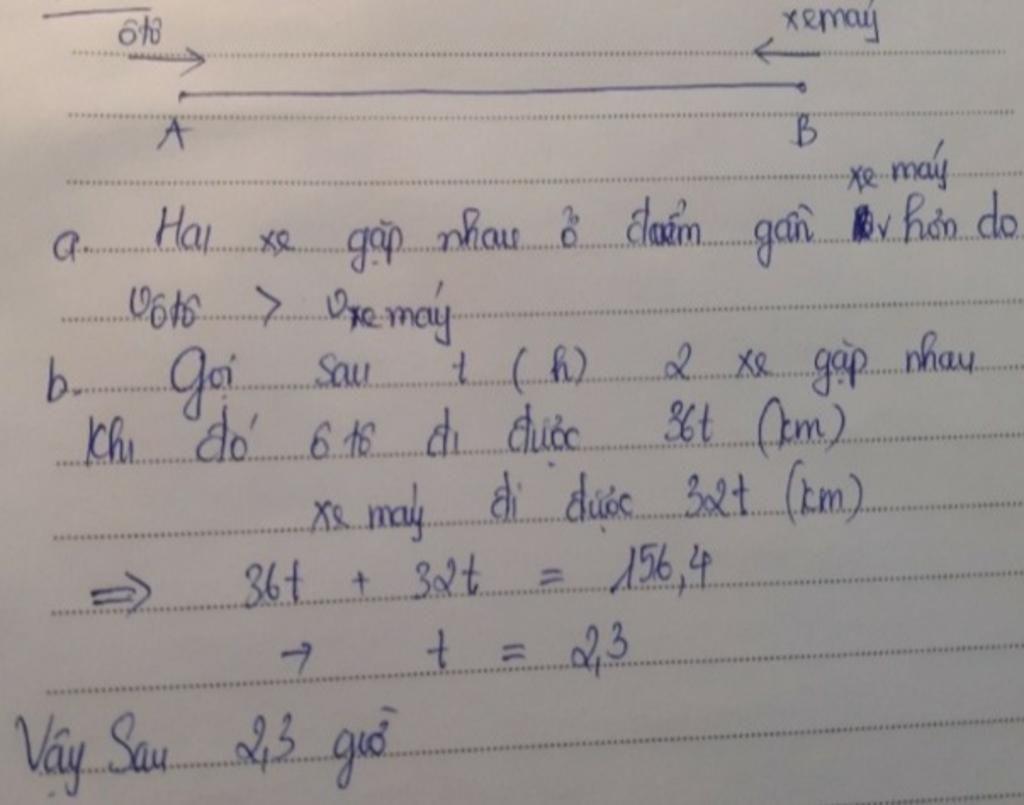 ôtô xe máy
A B
xe máy
a. Hai xe gặp nhau ở điểm gần hơn do
vôtô > vxe máy
b. Gọi sau t (h) 2 xe gặp nhau
Khi đó ô tô đi được 36t (km)
xe máy đi được 32t (km)
=> 36t + 32t = 156,4
→ t = 2,3
Vậy Sau 2,3 giờ